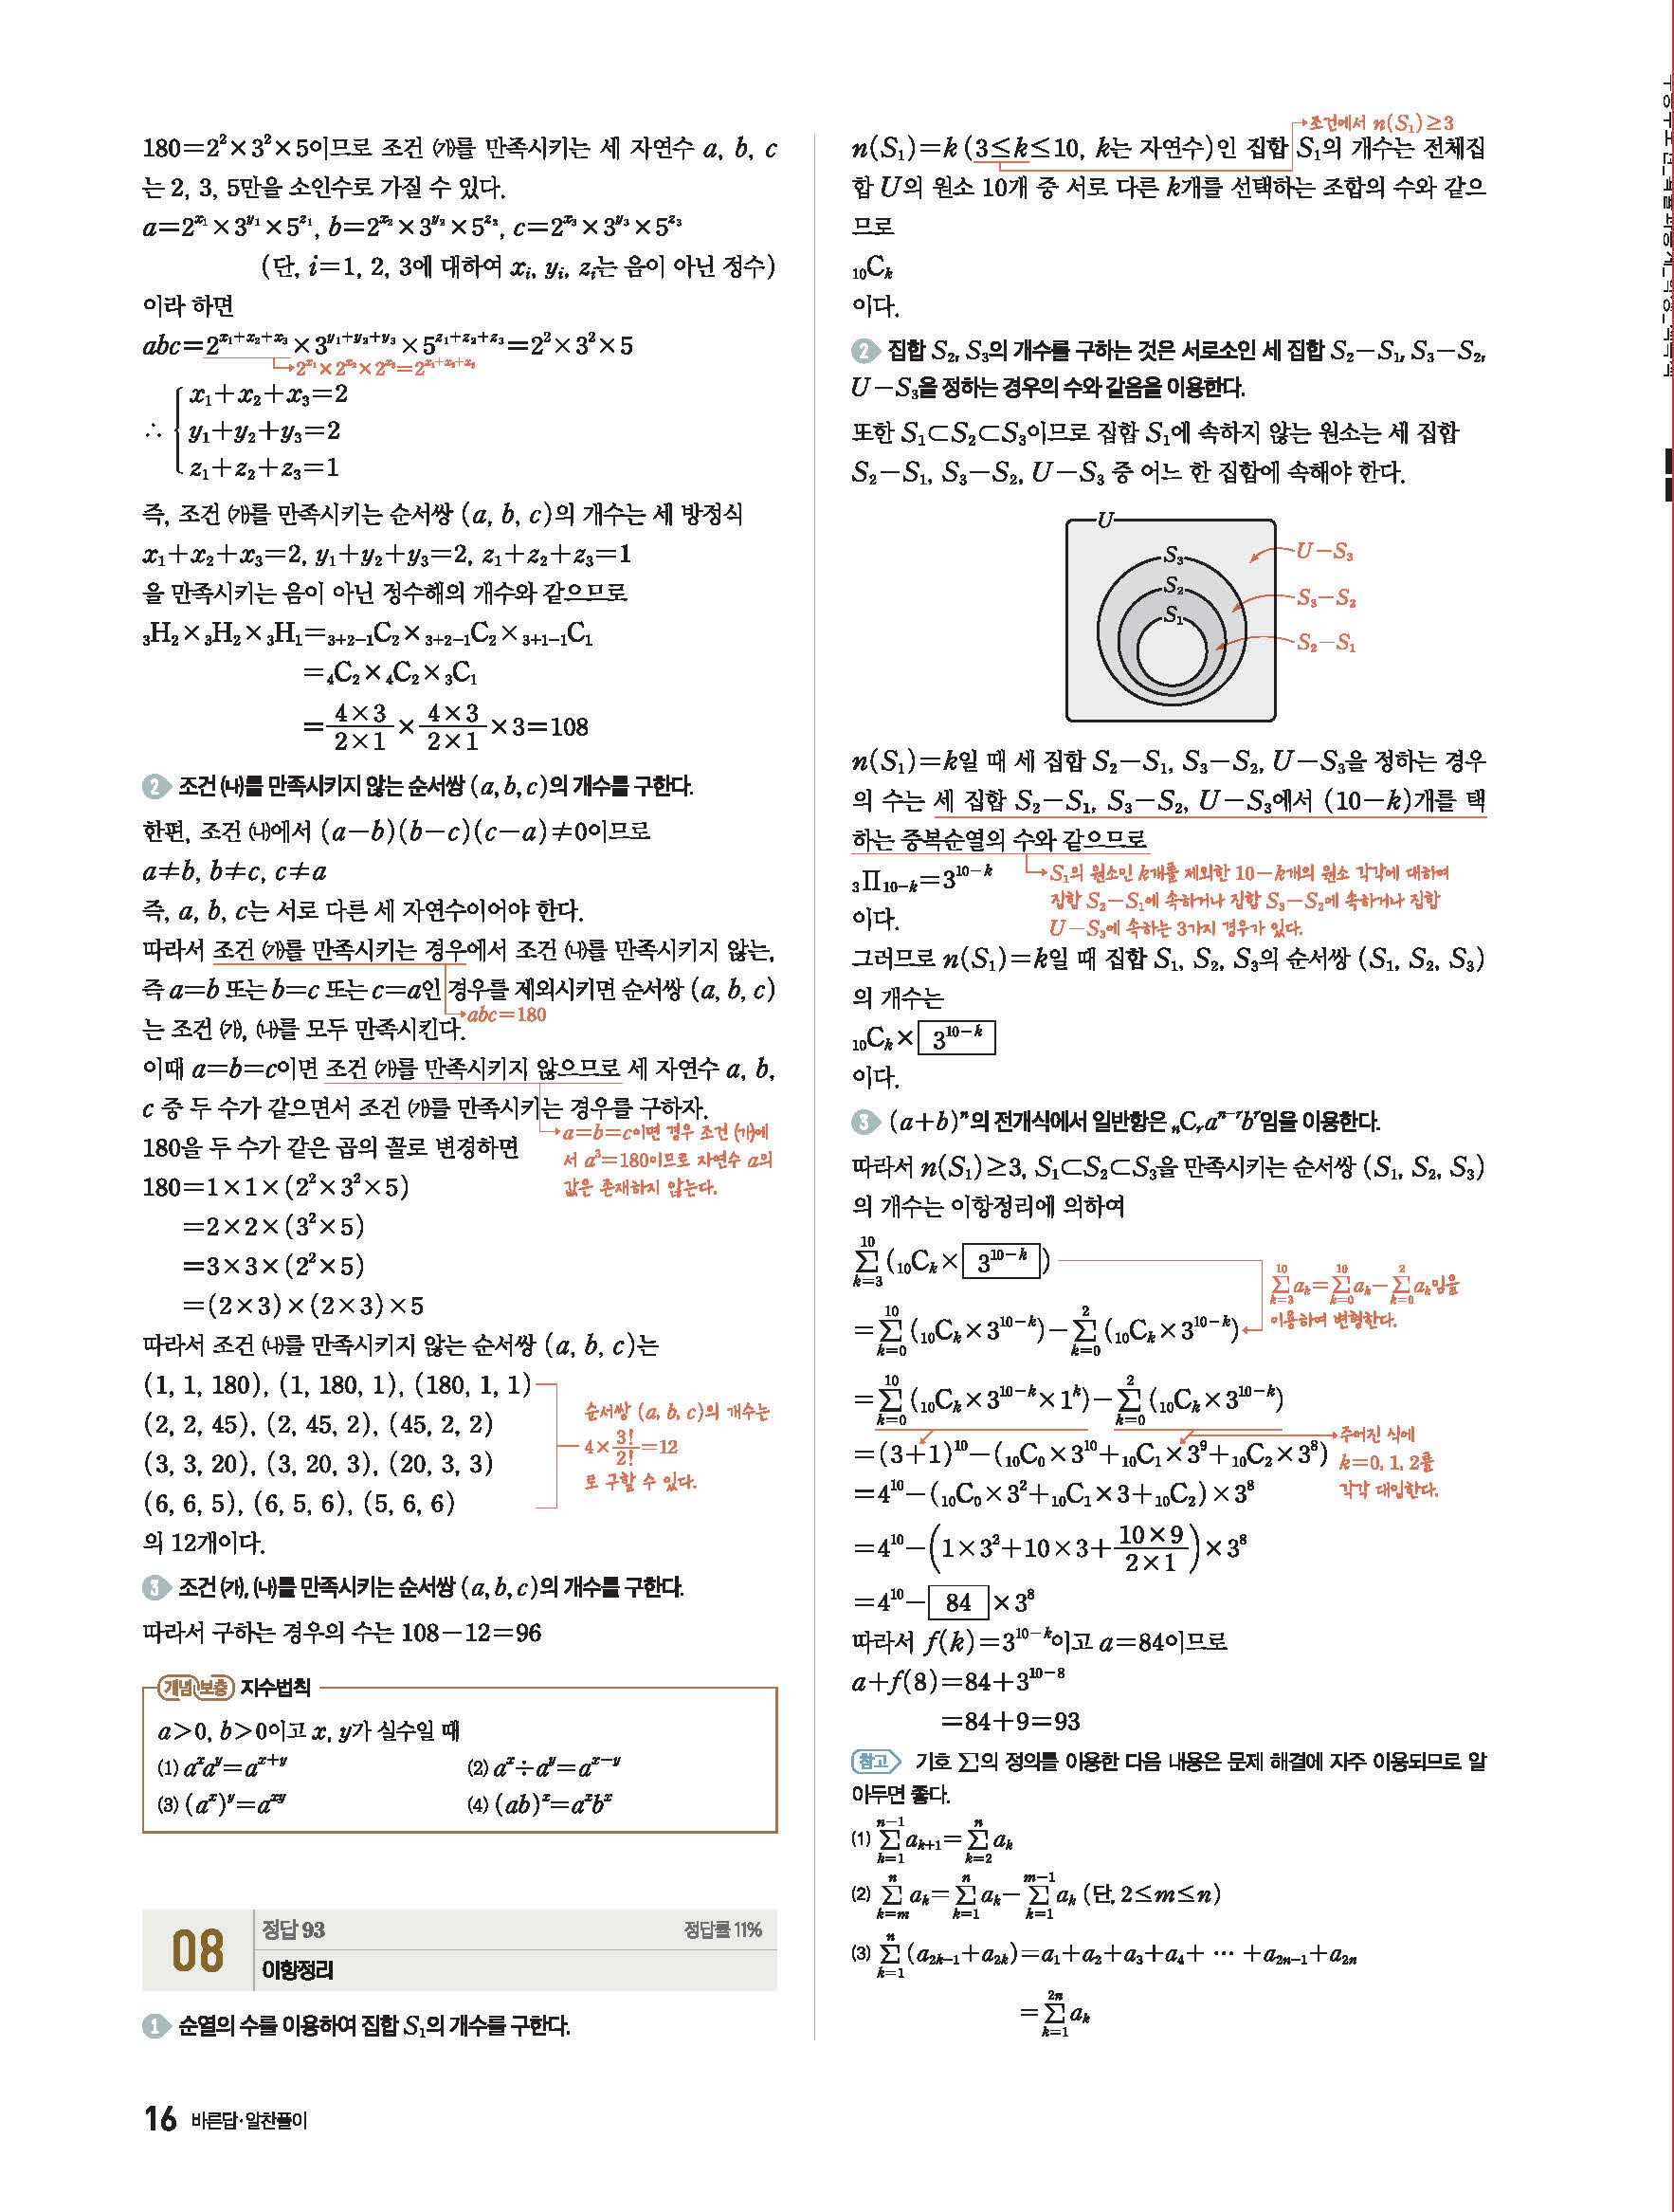 180=2²×3²×5이므로 조건 ㈎를 만족시키는 세 자연수 a, b, c
는 2, 3, 5만을 소인수로 가질 수 있다.
a=2^{x₁}×3^{y₁}×5^{z₁}, b=2^{x₂}×3^{y₂}×5^{z₂}, c=2^{x₃}×3^{y₃}×5^{z₃}
(단, i=1, 2, 3에 대하여 xᵢ, yᵢ, zᵢ는 음이 아닌 정수)
이라 하면
abc=2^{x₁+x₂+x₃}×3^{y₁+y₂+y₃}×5^{z₁+z₂+z₃}=2²×3²×5
2^{x₁}×2^{x₂}×2^{x₃}=2^{x₁+x₂+x₃}
x₁+x₂+x₃=2
∴ y₁+y₂+y₃=2
z₁+z₂+z₃=1
즉, 조건 ㈎를 만족시키는 순서쌍 (a, b, c)의 개수는 세 방정식
x₁+x₂+x₃=2, y₁+y₂+y₃=2, z₁+z₂+z₃=1
을 만족시키는 음이 아닌 정수해의 개수와 같으므로
₃H₂×₃H₂×₃H₁=₃₊₂₋₁C₂×₃₊₂₋₁C₂×₃₊₁₋₁C₁
=₄C₂×₄C₂×₃C₁
=(4×3)/(2×1)×(4×3)/(2×1)×3=108
2 조건 ㈏를 만족시키지 않는 순서쌍 (a, b, c)의 개수를 구한다.
한편, 조건 ㈏에서 (a−b)(b−c)(c−a)≠0이므로
a≠b, b≠c, c≠a
즉, a, b, c는 서로 다른 세 자연수이어야 한다.
따라서 조건 ㈎를 만족시키는 경우에서 조건 ㈏를 만족시키지 않는,
즉 a=b 또는 b=c 또는 c=a인 경우를 제외시키면 순서쌍 (a, b, c)
abc=180
는 조건 ㈎, ㈏를 모두 만족시킨다.
이때 a=b=c이면 조건 ㈎를 만족시키지 않으므로 세 자연수 a, b,
c 중 두 수가 같으면서 조건 ㈎를 만족시키는 경우를 구하자.
a=b=c이면 경우 조건 ㈎에
서 a³=180이므로 자연수 a의
값은 존재하지 않는다.
180을 두 수가 같은 곱의 꼴로 변경하면
180=1×1×(2²×3²×5)
=2×2×(3²×5)
=3×3×(2²×5)
=(2×3)×(2×3)×5
따라서 조건 ㈏를 만족시키지 않는 순서쌍 (a, b, c)는
(1, 1, 180), (1, 180, 1), (180, 1, 1)
(2, 2, 45), (2, 45, 2), (45, 2, 2)
(3, 3, 20), (3, 20, 3), (20, 3, 3)
(6, 6, 5), (6, 5, 6), (5, 6, 6)
순서쌍 (a, b, c)의 개수는
4×3!/2!=12
로 구할 수 있다.
의 12개이다.
3 조건 ㈎, ㈏를 만족시키는 순서쌍 (a, b, c)의 개수를 구한다.
따라서 구하는 경우의 수는 108−12=96
개념 보충 지수법칙
a>0, b>0이고 x, y가 실수일 때
(1) aˣaʸ=aˣ⁺ʸ (2) aˣ÷aʸ=aˣ⁻ʸ
(3) (aˣ)ʸ=aˣʸ (4) (ab)ˣ=aˣbˣ
08
정답 93 정답률 11%
이항정리
1 순열의 수를 이용하여 집합 S₁의 개수를 구한다.
16 바른답·알찬풀이
조건에서 n(S₁)≥3
n(S₁)=k (3≤k≤10, k는 자연수)인 집합 S₁의 개수는 전체집
합 U의 원소 10개 중 서로 다른 k개를 선택하는 조합의 수와 같으
므로
₁₀Cₖ
이다.
2 집합 S₂, S₃의 개수를 구하는 것은 서로소인 세 집합 S₂−S₁, S₃−S₂,
U−S₃을 정하는 경우의 수와 같음을 이용한다.
또한 S₁⊂S₂⊂S₃이므로 집합 S₁에 속하지 않는 원소는 세 집합
S₂−S₁, S₃−S₂, U−S₃ 중 어느 한 집합에 속해야 한다.
U
S₃
S₂
S₁
U−S₃
S₃−S₂
S₂−S₁
n(S₁)=k일 때 세 집합 S₂−S₁, S₃−S₂, U−S₃을 정하는 경우
의 수는 세 집합 S₂−S₁, S₃−S₂, U−S₃에서 (10−k)개를 택
하는 중복순열의 수와 같으므로
₃Π₁₀₋ₖ=3^{10−k}
S₁의 원소인 k개를 제외한 10−k개의 원소 각각에 대하여
집합 S₂−S₁에 속하거나 집합 S₃−S₂에 속하거나 집합
U−S₃에 속하는 3가지 경우가 있다.
이다.
그러므로 n(S₁)=k일 때 집합 S₁, S₂, S₃의 순서쌍 (S₁, S₂, S₃)
의 개수는
₁₀Cₖ× 3^{10−k}
이다.
3 (a+b)ⁿ의 전개식에서 일반항은 ₙCᵣaⁿ⁻ʳbʳ임을 이용한다.
따라서 n(S₁)≥3, S₁⊂S₂⊂S₃을 만족시키는 순서쌍 (S₁, S₂, S₃)
의 개수는 이항정리에 의하여
∑_{k=3}^{10}(₁₀Cₖ× 3^{10−k})
∑_{k=3}^{10}aₖ=∑_{k=0}^{10}aₖ−∑_{k=0}^{2}aₖ임을
이용하여 변형한다.
=∑_{k=0}^{10}(₁₀Cₖ×3^{10−k})−∑_{k=0}^{2}(₁₀Cₖ×3^{10−k})
=∑_{k=0}^{10}(₁₀Cₖ×3^{10−k}×1ᵏ)−∑_{k=0}^{2}(₁₀Cₖ×3^{10−k})
=(3+1)¹⁰−(₁₀C₀×3¹⁰+₁₀C₁×3⁹+₁₀C₂×3⁸)
주어진 식에
k=0, 1, 2를
각각 대입한다.
=4¹⁰−(₁₀C₀×3²+₁₀C₁×3+₁₀C₂)×3⁸
=4¹⁰−(1×3²+10×3+(10×9)/(2×1))×3⁸
=4¹⁰− 84 ×3⁸
따라서 f(k)=3^{10−k}이고 a=84이므로
a+f(8)=84+3^{10−8}
=84+9=93
참고 기호 ∑의 정의를 이용한 다음 내용은 문제 해결에 자주 이용되므로 알
아두면 좋다.
(1) ∑_{k=1}^{n−1}aₖ₊₁=∑_{k=2}^{n}aₖ
(2) ∑_{k=m}^{n}aₖ=∑_{k=1}^{n}aₖ−∑_{k=1}^{m−1}aₖ (단, 2≤m≤n)
(3) ∑_{k=1}^{n}(a₂ₖ₋₁+a₂ₖ)=a₁+a₂+a₃+a₄+ ⋯ +a₂ₙ₋₁+a₂ₙ
=∑_{k=1}^{2n}aₖ